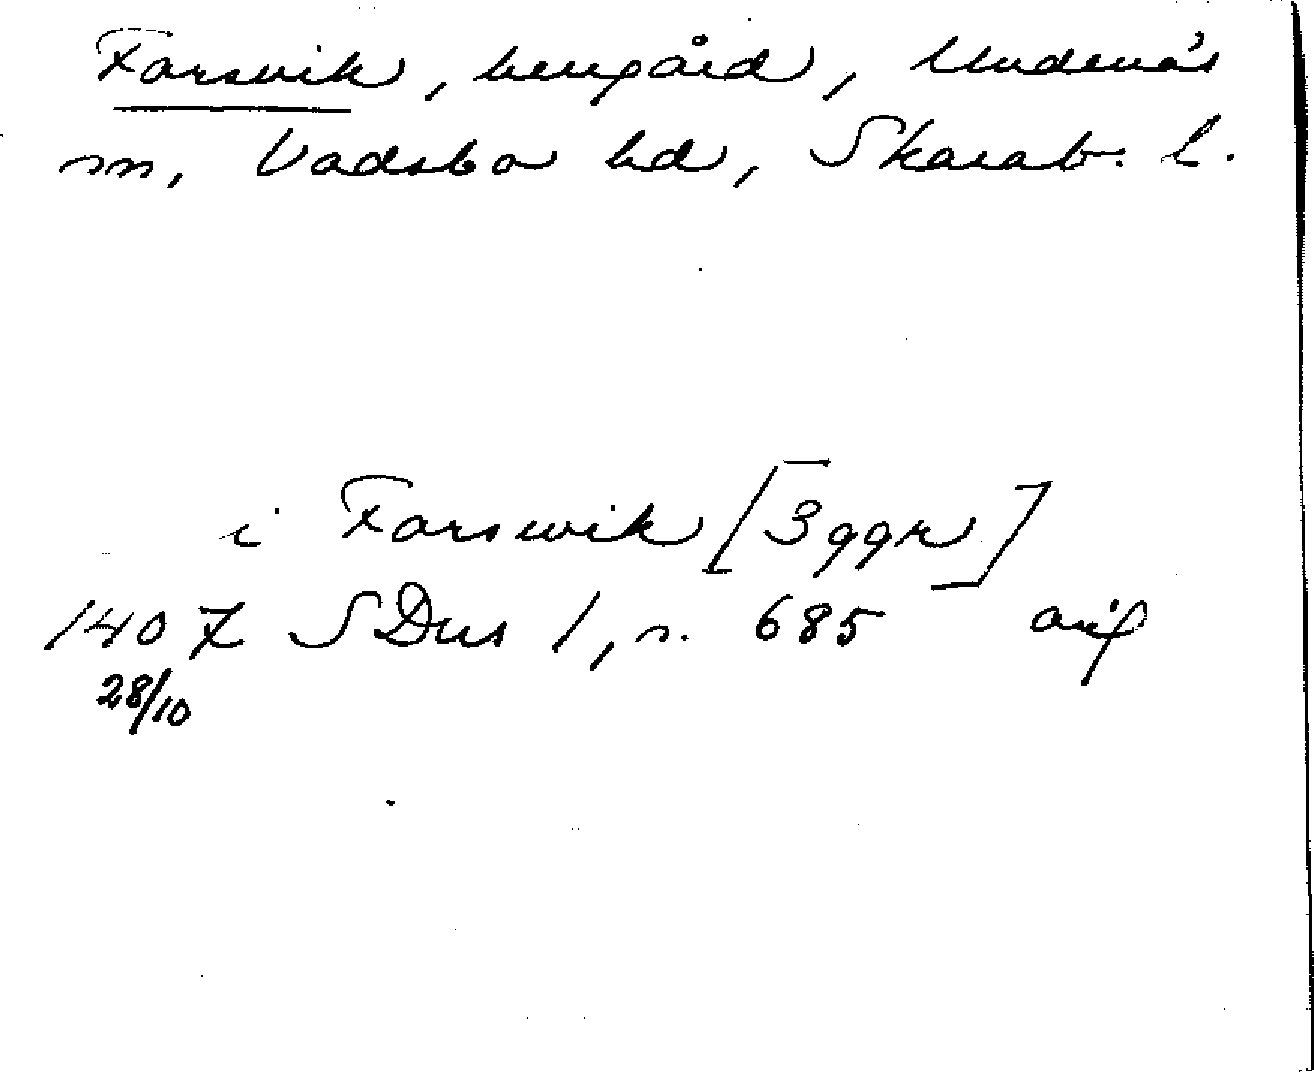 Forsvik, herrgård, Undenäs
sn, Vadsbo hd, Skarab. l.
i Forswik [3 ggr]
1407 SDns 1, s. 685 avf
28/10